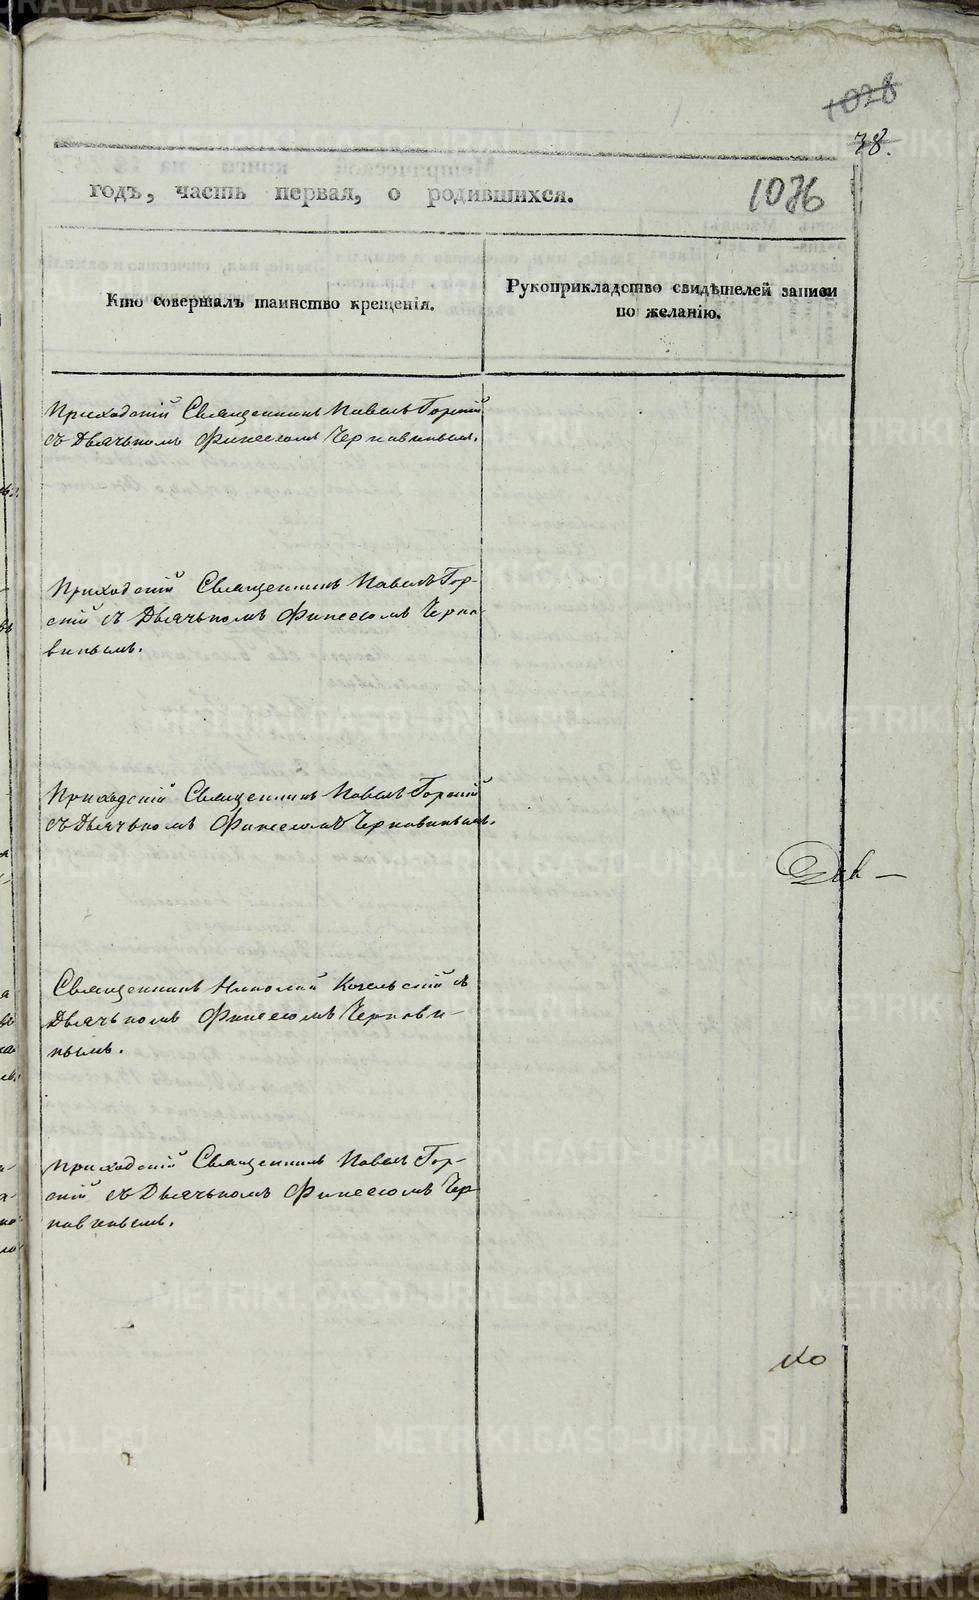 1028
78.
1076
годъ, часть первая, о родившихся.
Кто совершалъ таинство крещенія.
Рукоприкладство свидѣтелей записи
по желанію.
Приходскій Священникъ Павелъ Горскій
съ Дьячькомъ Финеесомъ Черновинымъ.
Приходскій Священникъ Павелъ Гор-
скій съ Дьячькомъ Финеесомъ Черно-
винымъ.
Приходскій Священникъ Павелъ Горскій
съ Дьячькомъ Финеесомъ Черновинымъ.
Священникъ Николай Когельскій съ
Дьячькомъ Финеесомъ Чернови-
нымъ.
Приходскій Священникъ Павелъ Гор-
скій съ Дьячькомъ Финеесомъ Чер-
новинымъ.
METRIKI.GASO-URAL.RU